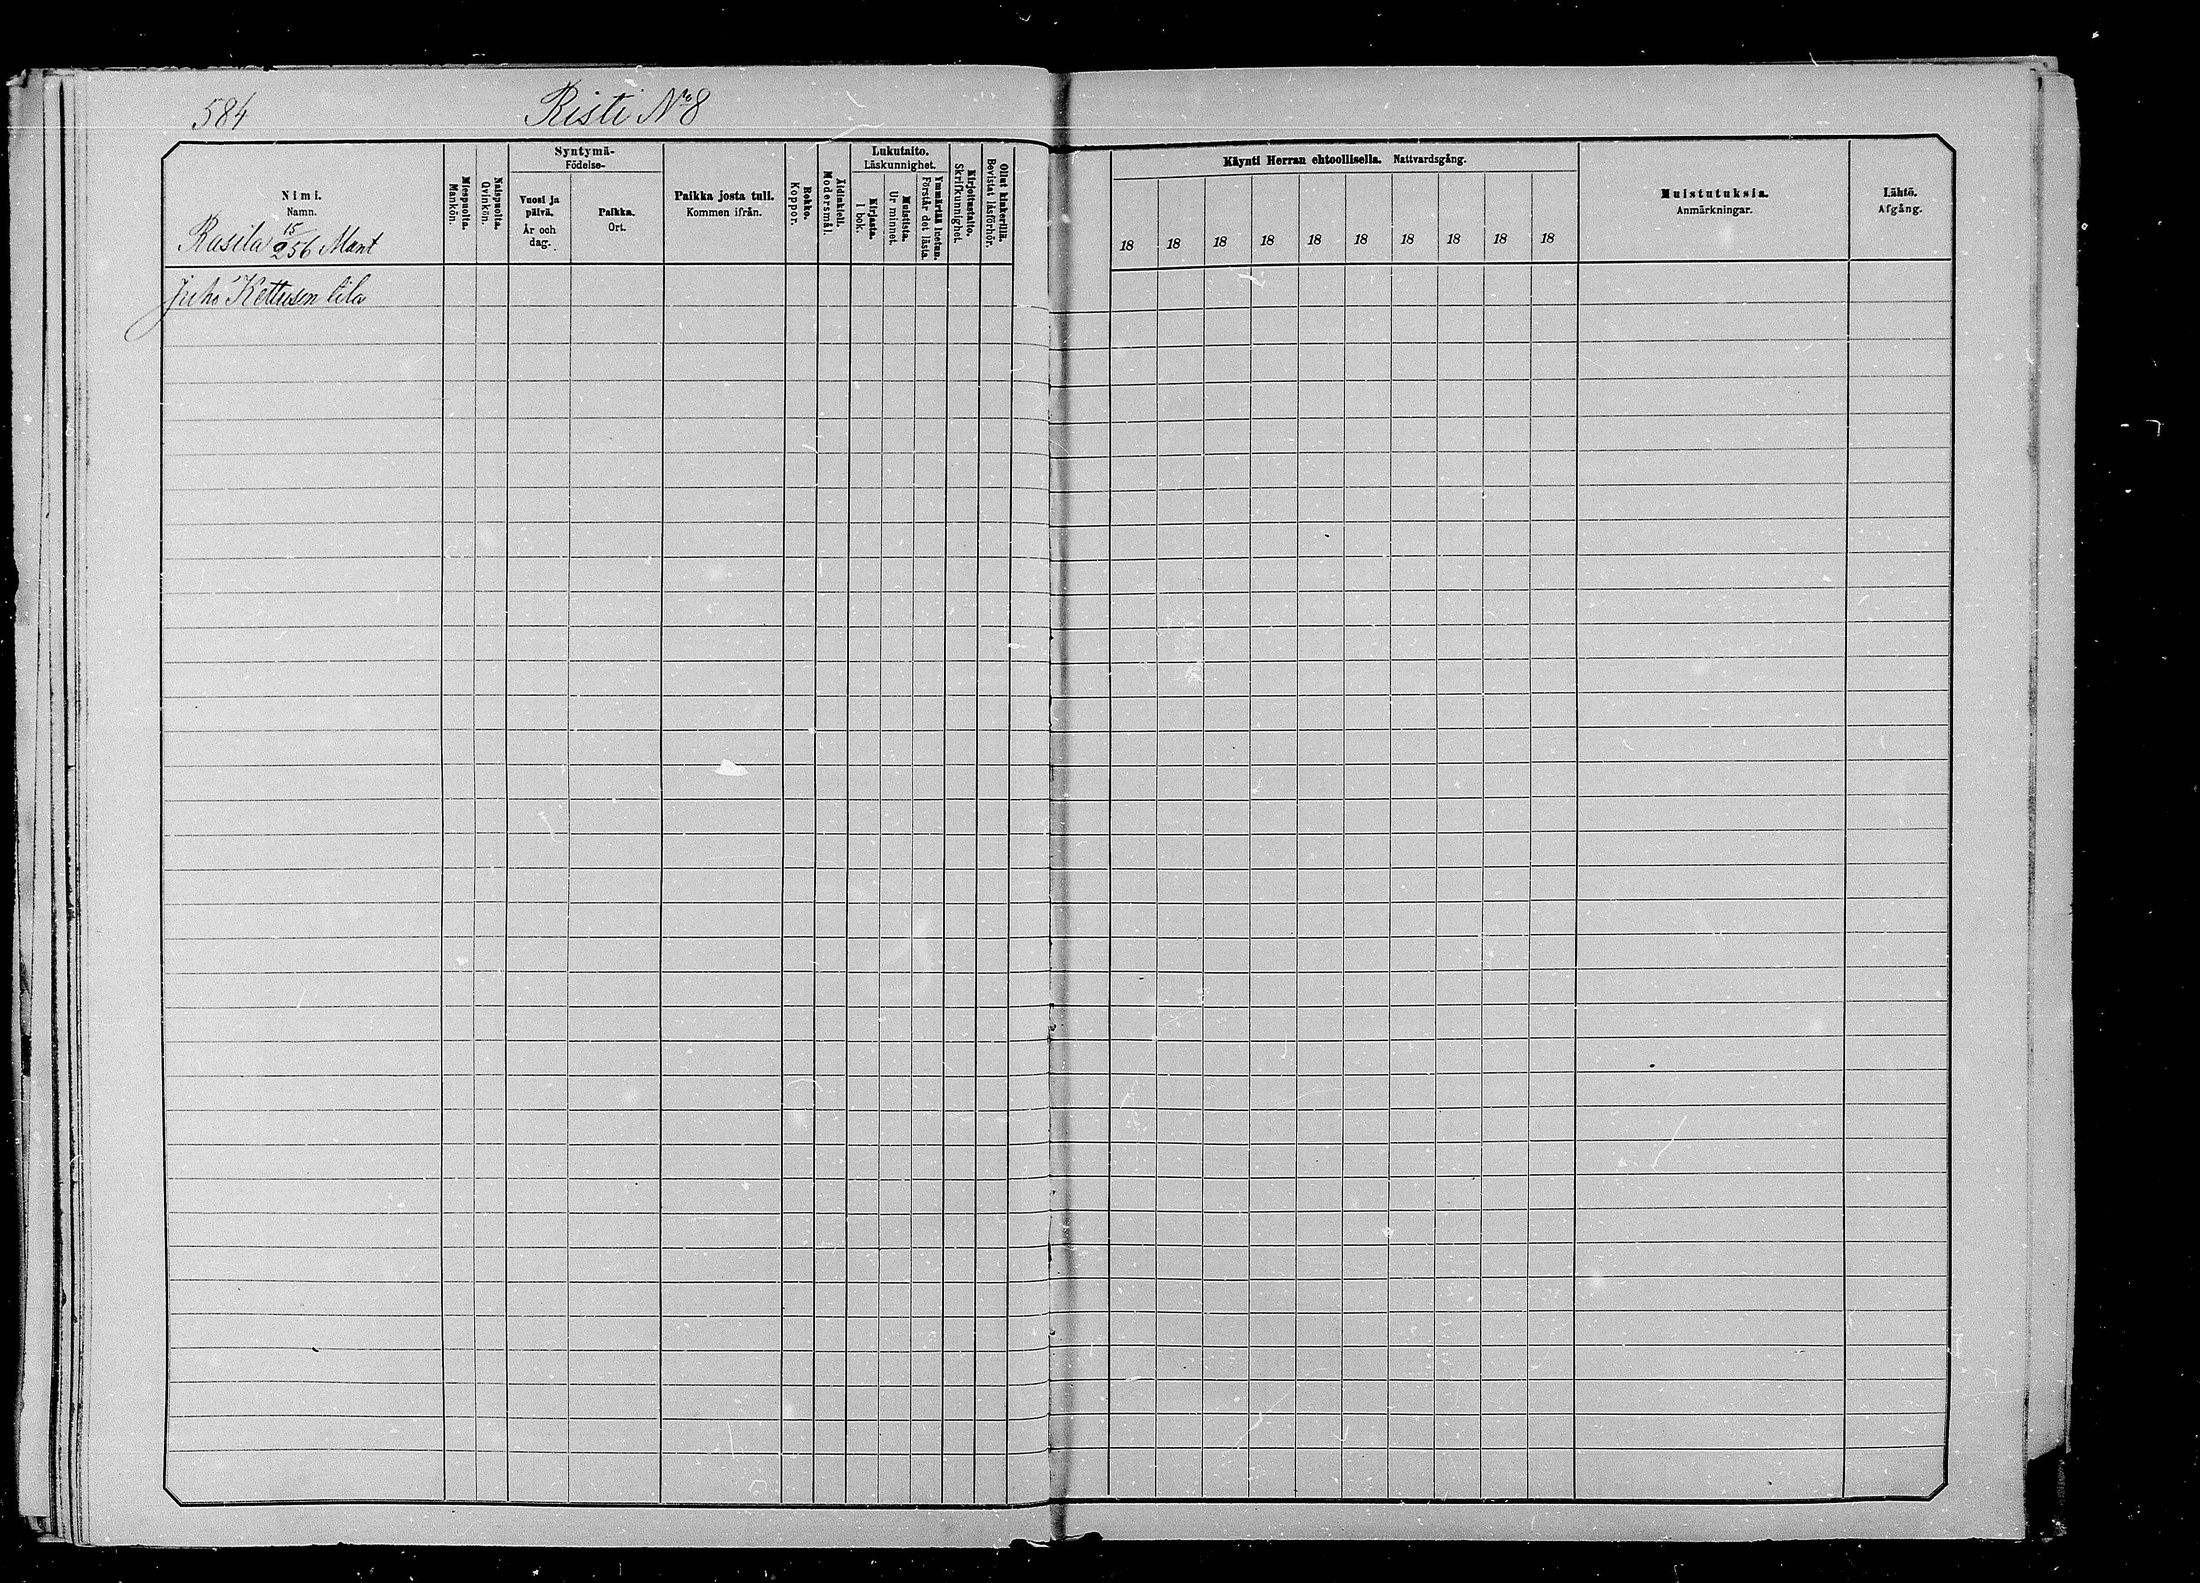 584
Risti No 8
Syntymä-
Födelse-
Lukutaito.
Läskunnighet.
Nimi.
Namn.
Miespuolta.
Mankön.
Naispuolta.
Qvinkön.
Vuosi ja
päivä.
År och
dag.
Paikka.
Ort.
Paikka josta tuli.
Kommen ifrån.
Rokko.
Koppor.
Äidinkieli.
Modersmål.
Kirjasta.
I bok.
Muistista.
Ur minnet.
Ymmärtää luetun.
Förstår det lästa.
Kirjoitustaito.
Skrifkunnighet.
Ollut kinkerillä.
Bevistat läsförhör.
Rasila 15/256 Mant
Juho Kettusen tila
Käynti Herran ehtoollisella. Nattvardsgång.
18 18 18 18 18 18 18 18 18 18
Muistutuksia.
Anmärkningar.
Lähtö.
Afgång.